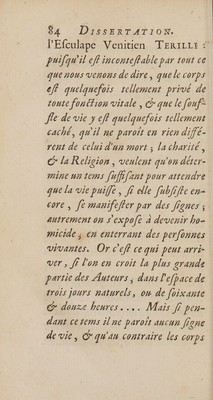 84 DISSERTATION.
l'Eſculape Venitien TERILLI:
puiſqu'il eſt inconteſtable par tout ce
que nous venons de dire, que le corps
eſt quelquefois tellement privé de
toute fonction vitale, & que le ſouf-
fle de vie y eſt quelquefois tellement
caché, qu'il ne paroît en rien diffé-
rent de celui d'un mort; la charité,
& la Religion, veulent qu'on déter-
mine un tems ſuffiſant pour attendre
que la vie puiſſe, ſi elle ſubſiſte en-
core, ſe manifeſter par des ſignes;
autrement on s'expoſe à devenir ho-
micide, en enterrant des perſonnes
vivantes. Or c'eſt ce qui peut arri-
ver, ſi l'on en croit la plus grande
partie des Auteurs, dans l'eſpace de
trois jours naturels, ou de ſoixante
& douze heures.... Mais ſi pen-
dant ce tems il ne paroît aucun ſigne
de vie, & qu'au contraire les corps